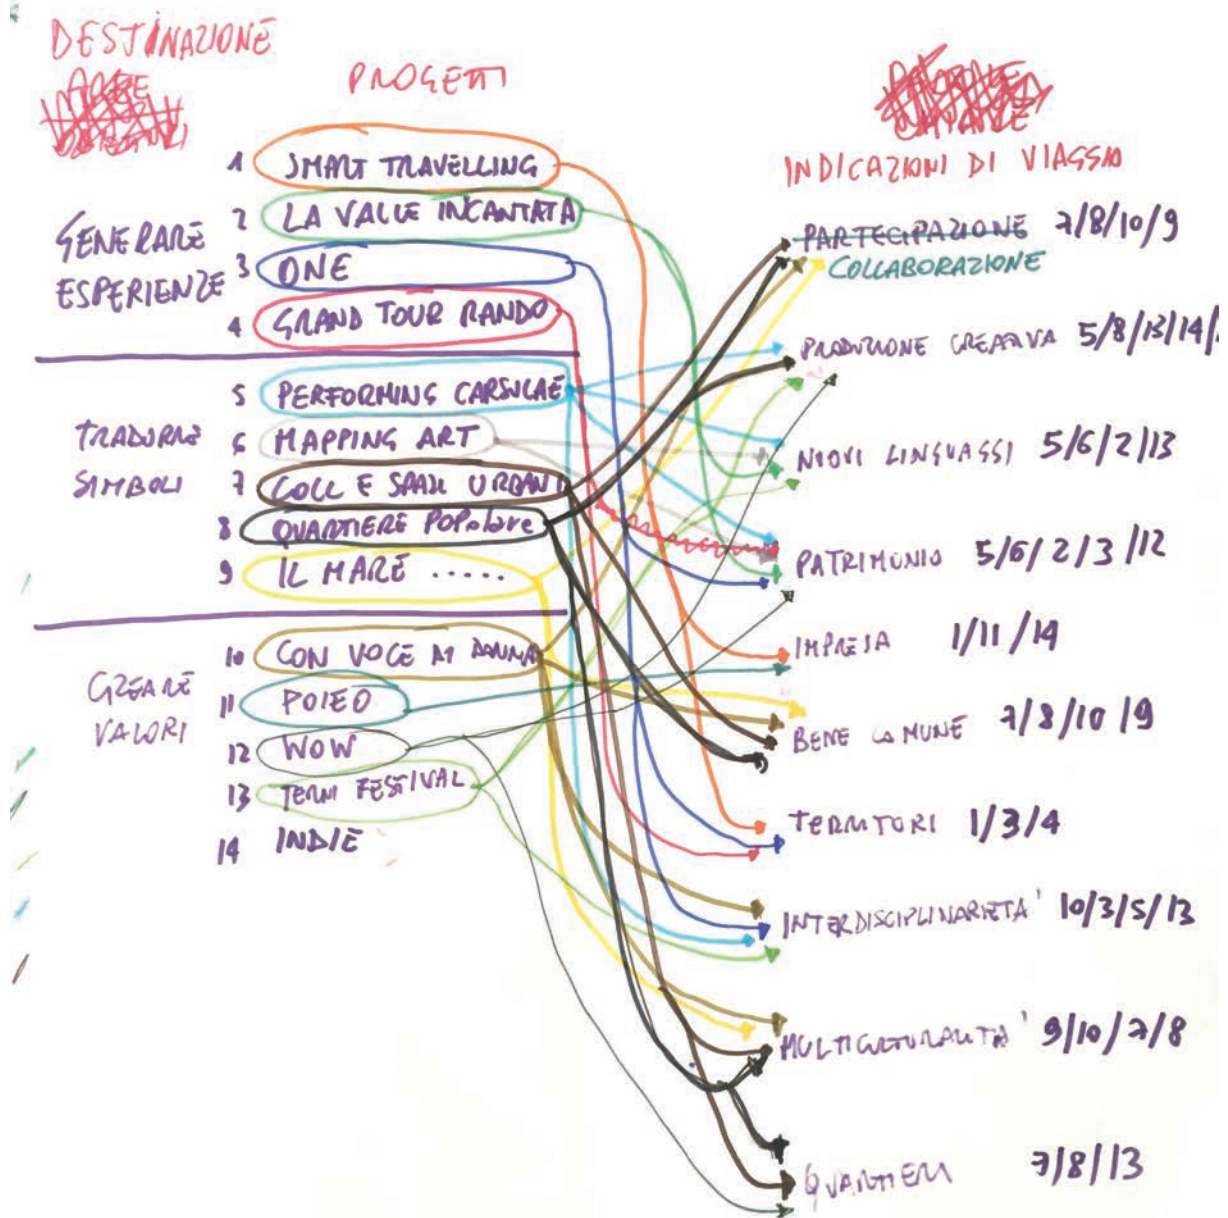 DESTINAZIONE
PROGETTI
INDICAZIONI DI VIAGGIO
GENERARE
ESPERIENZE
1 SMART TRAVELLING
2 LA VALLE INCANTATA
3 ONE
4 GRAND TOUR RANDO
TRADURRE
SIMBOLI
5 PERFORMING CARSULAE
6 MAPPING ART
7 COLL E SPAZI URBANI
8 QUARTIERE POPOLARE
9 IL MARE .....
CREARE
VALORI
10 CON VOCE DI DONNA
11 POIEO
12 WOW
13 TERNI FESTIVAL
14 INDIE
PARTECIPAZIONE 7/8/10/9
COLLABORAZIONE
PRODUZIONE CREATIVA 5/8/13/14/
NUOVI LINGUAGGI 5/6/2/13
PATRIMONIO 5/6/2/3/12
IMPRESA 1/11/14
BENE COMUNE 7/8/10/9
TERRITORI 1/3/4
INTERDISCIPLINARIETA' 10/3/5/13
MULTICULTURALITA' 9/10/7/8
QUARTIERI 7/8/13